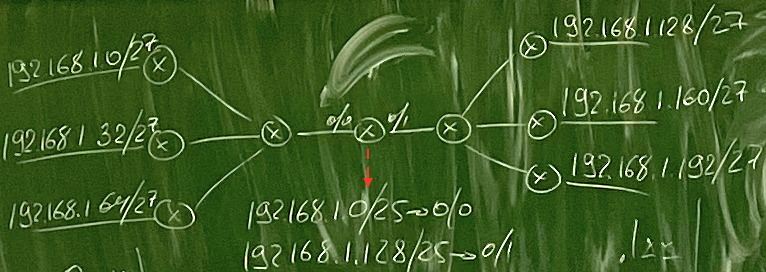 192.168.1.0/27
192.168.1.128/27
0/0
0/1
192.168.1.160/27
192.168.1.32/27
192.168.1.192/27
192.168.1.64/27
192.168.1.0/25→0/0
192.168.1.128/25→0/1